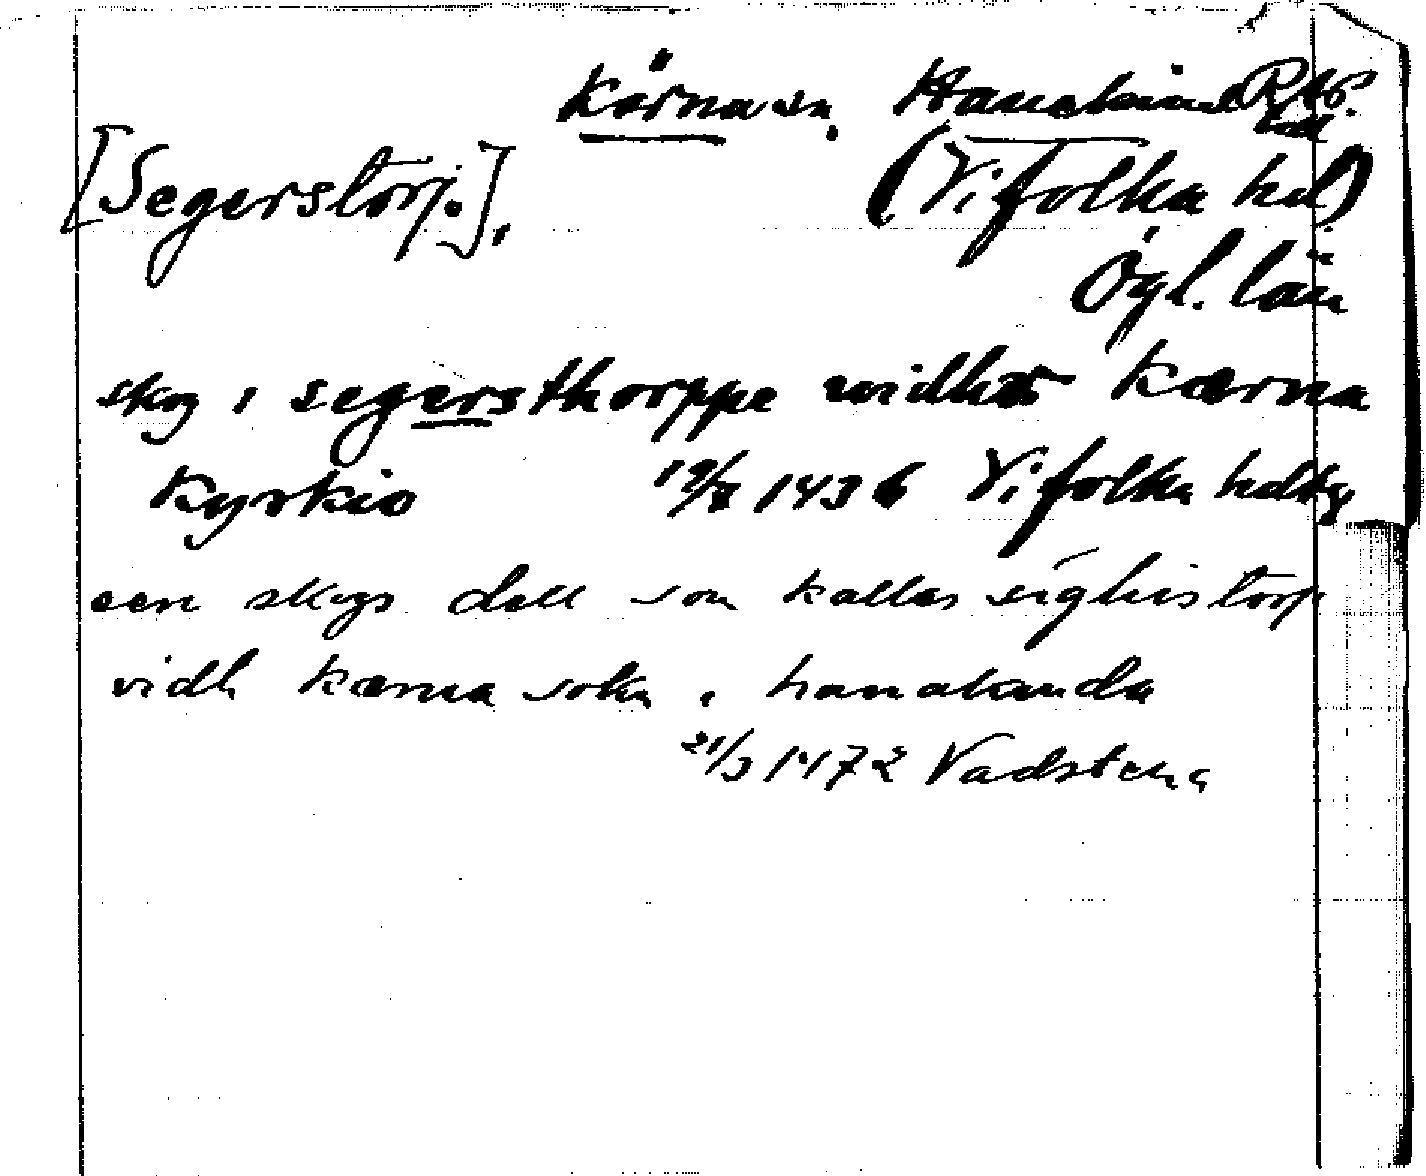 Kärna sn, Hanekinds hd
[Segerstorp.],
(Vifolka hd)
Ögl. län
skog i segersthorppe widher Kærna
Kyrkio 19/7 1436 Vifolka hdtg
een skogs deell som kallas sighistorp
vidh kærna sokn i hanakinda
21/3 1472 Vadstena